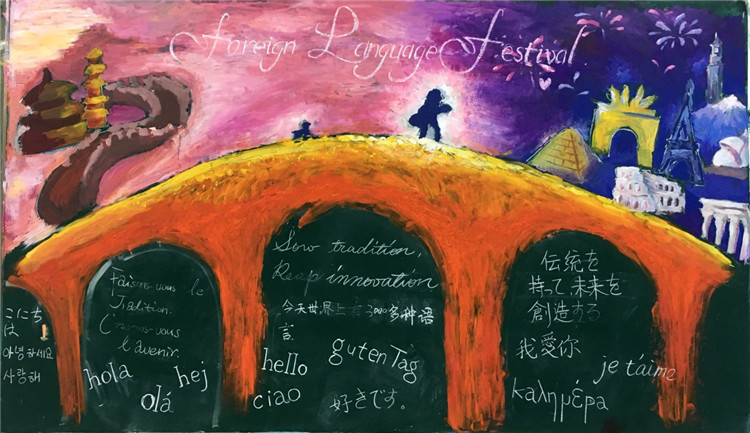 Foreign Language Festival
こにち
は
안녕하세요
사랑해
Faisons-vous le
Tradition.
vous
l'avenir.
hola
hej
olá
Sow tradition,
Reap innovation
今天世界上有3000多种语
言
hello
guten Tag
ciao
好きです。
伝統を
持って、未来を
創造する
我愛你
je t'aime
καλημέρα